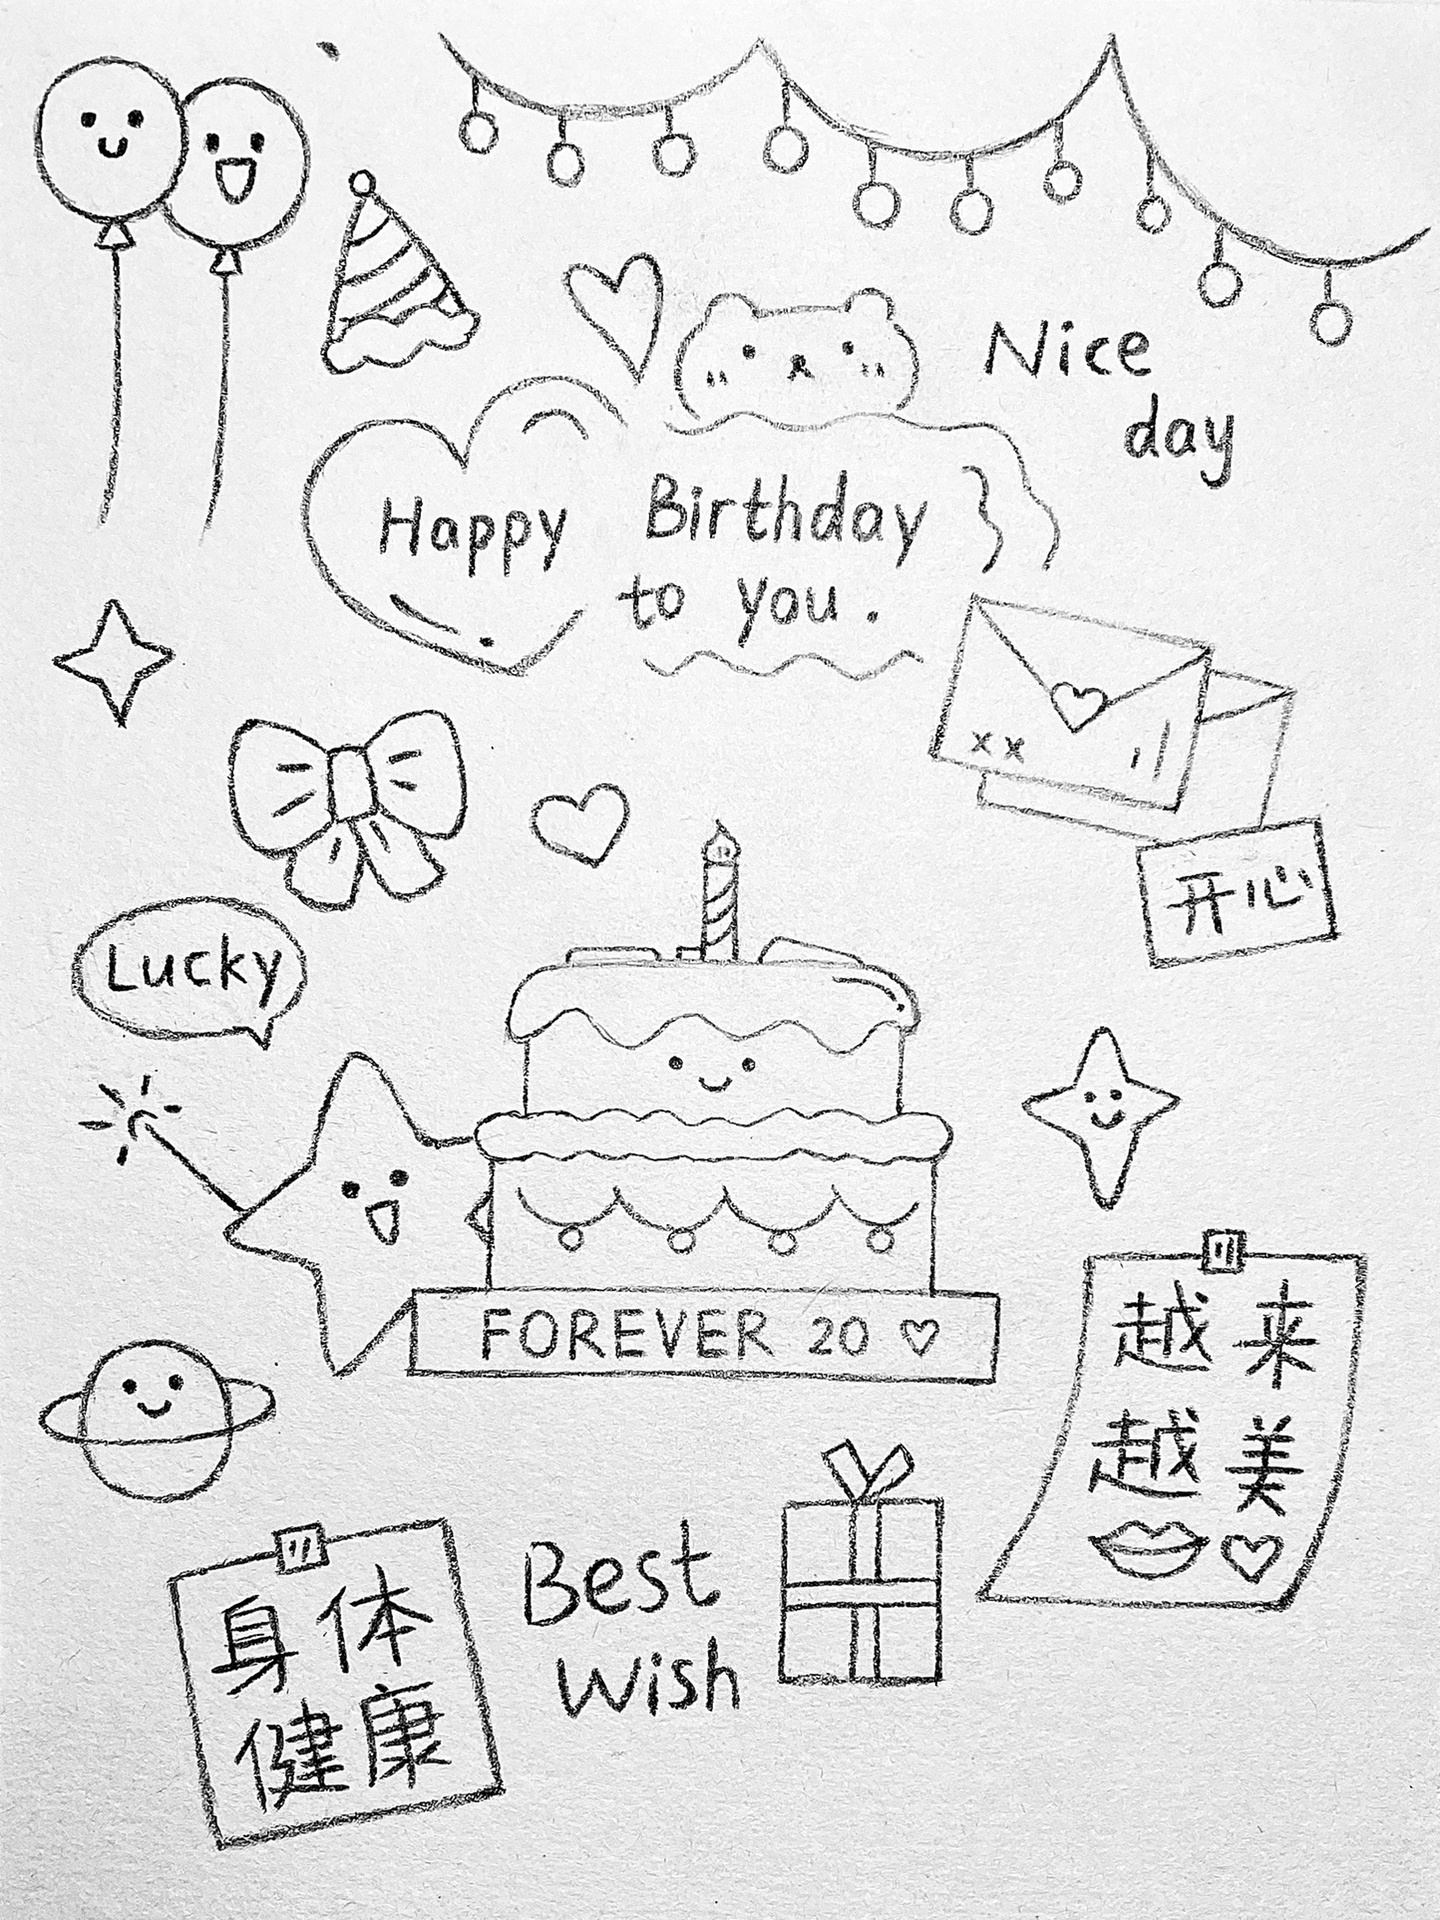 Nice
day
Happy Birthday
to you.
xx
开心
Lucky
FOREVER 20 ♡
越来
越美
Best
Wish
身体
健康